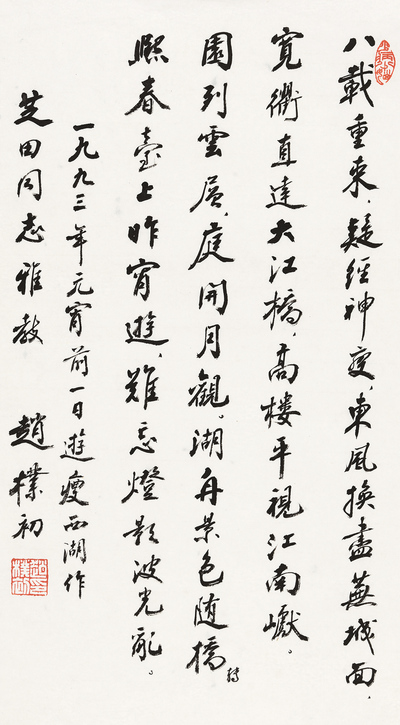 八載重來，疑經神變，東風換盡蕪城面，
寬衢直達大江橋，高樓平視江南巘。
園列雲屏，庭開月觀。湖舟景色随橋轉
熙春臺上昨宵遊，難忘燈影波光亂。
一九九三年元宵前一日遊瘦西湖作
芝田同志雅教 趙樸初